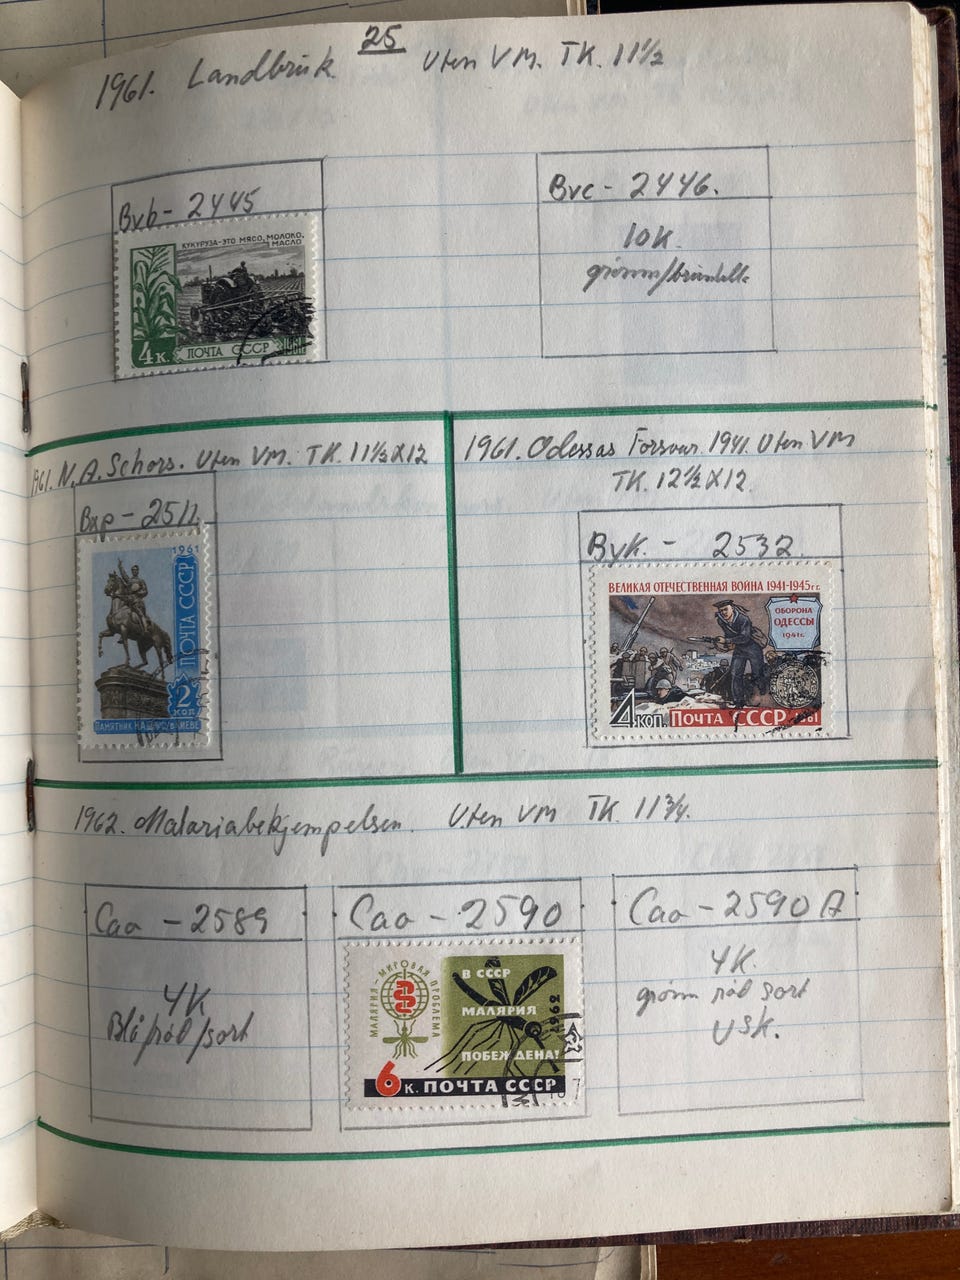 25
1961. Landbruk. Uten VM. TK. 11½
Bvb - 2445
КУКУРУЗА-ЭТО МЯСО, МОЛОКО,
МАСЛО
4 К. ПОЧТА СССР 1961
Bvc - 2446.
10K.
grønn/
1961. N. A. Schors. Uten VM. TK. 11½X12
Bxp - 2511
1961
ПОЧТА СССР
2
КОП
ПАМЯТНИК Н.А.ЩОРСУ В КИЕВЕ
1961. Odessas Forsvar 1941. Uten VM
TK. 12½X12.
Byk. - 2532.
ВЕЛИКАЯ ОТЕЧЕСТВЕННАЯ ВОЙНА 1941-1945гг.
ОБОРОНА
ОДЕССЫ
1941г.
4 КОП. ПОЧТА СССР 1961
1962. Malariabekjempelsen. Uten VM TK. 11¾.
Cao - 2589
4K
Blå/rød/sort
Cao - 2590
МАЛЯРИЯ-МИРОВАЯ ПРОБЛЕМА
В СССР
МАЛЯРИЯ
ПОБЕЖДЕНА!
1962
6 К. ПОЧТА СССР
Cao - 2590 A
4K.
grønn rød sort
USK.